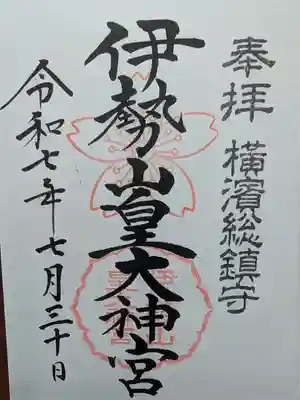 奉拝 横濱総鎮守
伊勢山皇大神宮
令和七年七月三十日